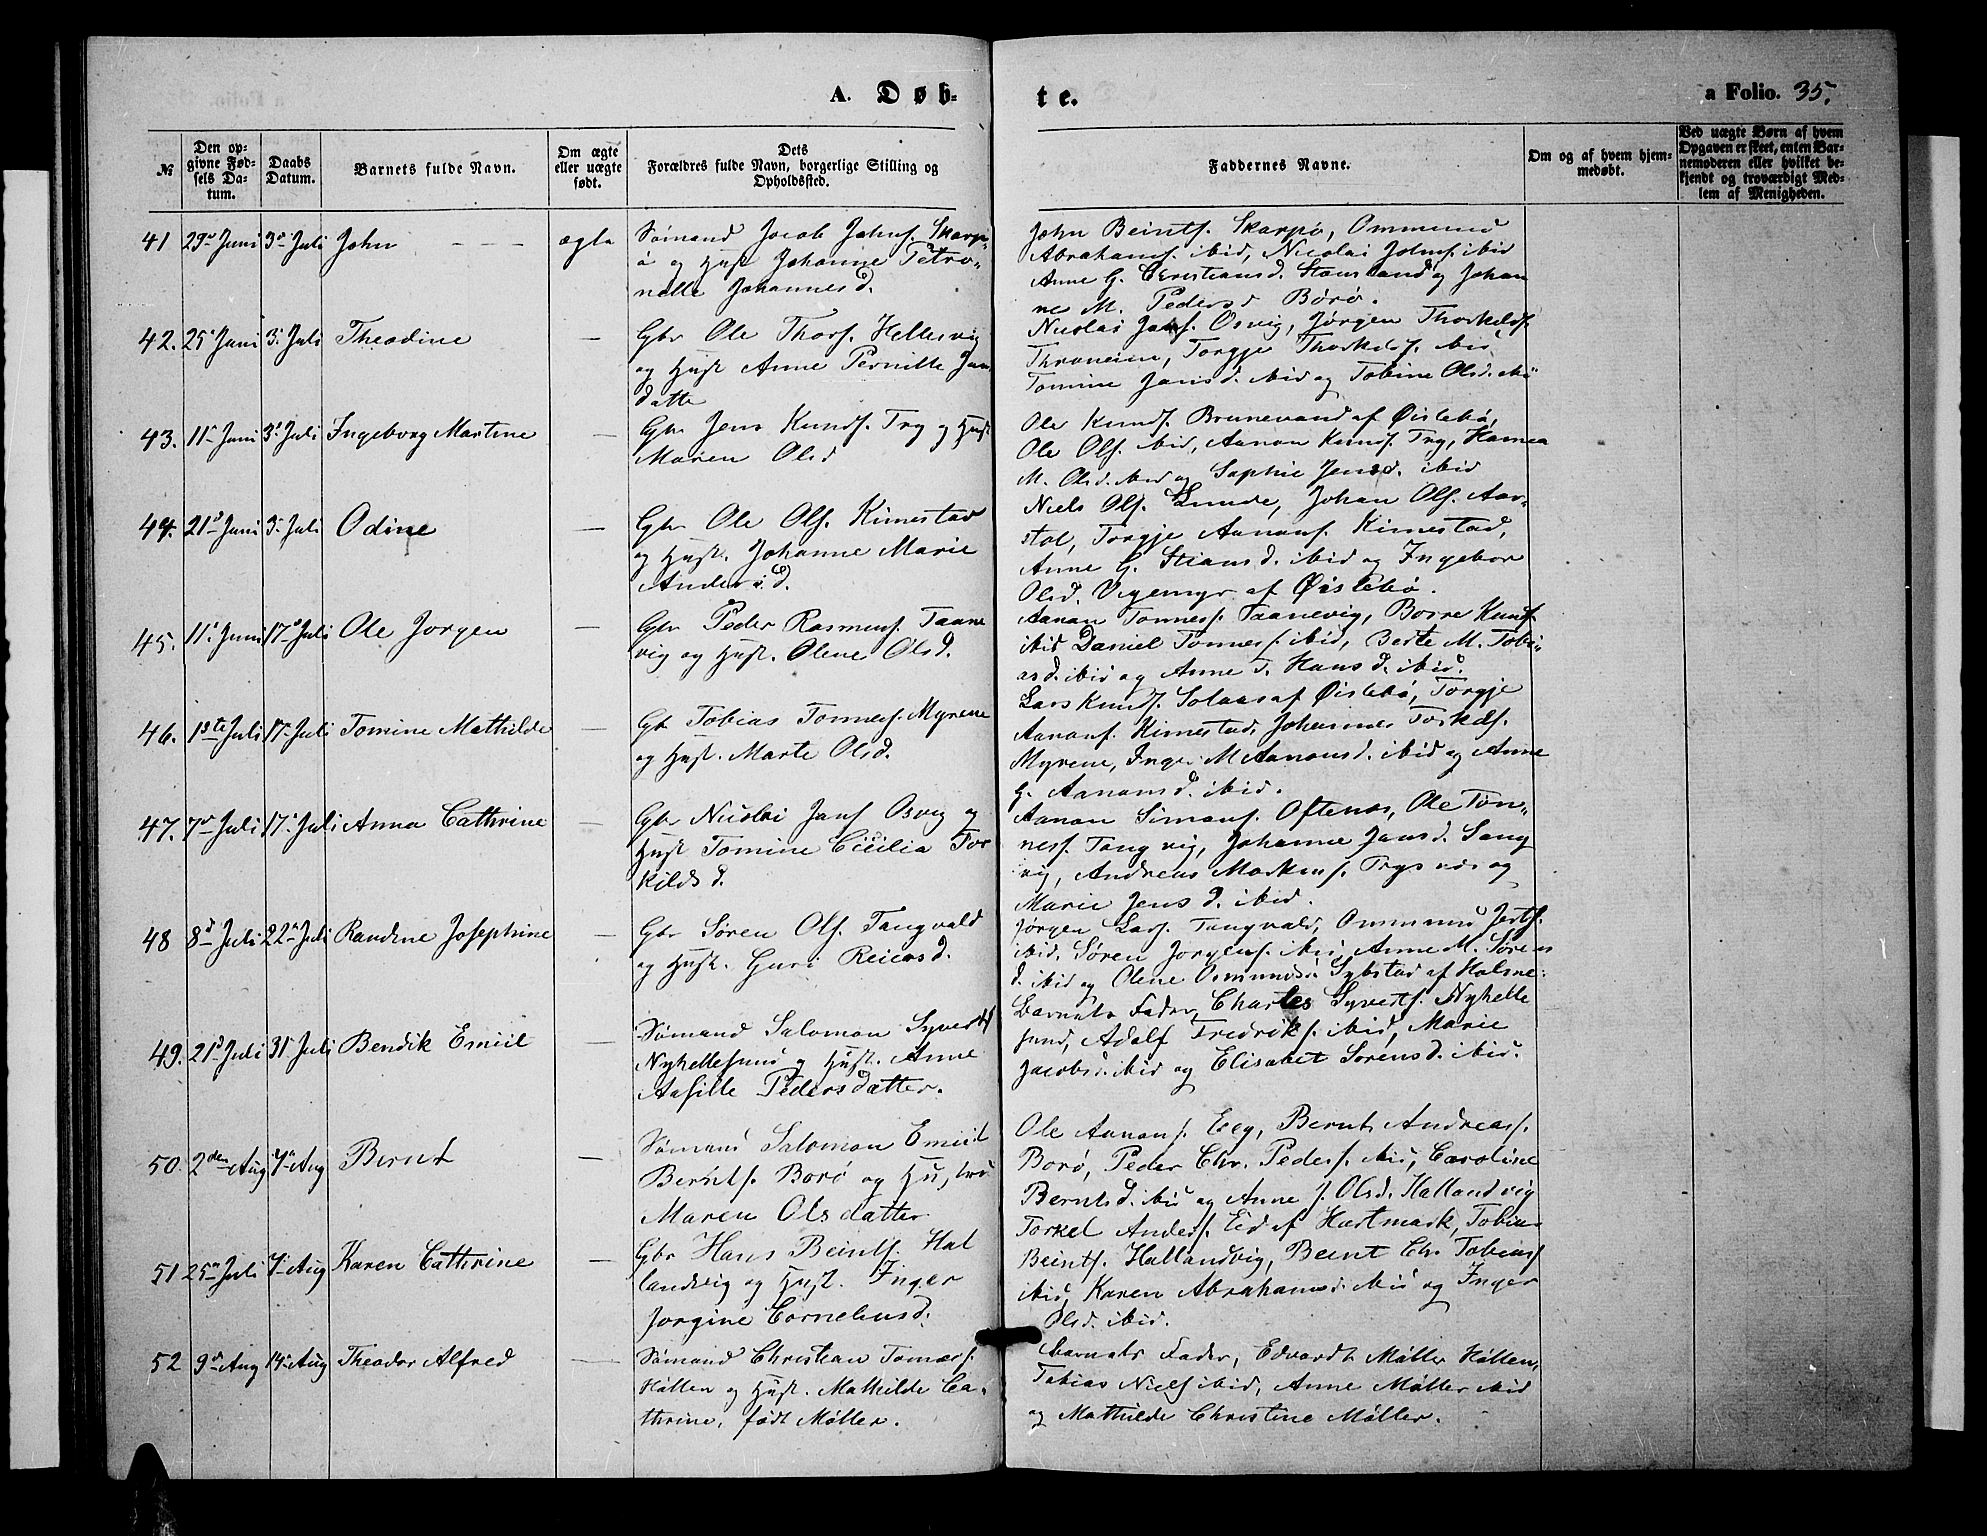 A. Døb-
te.
a Folio. 35.
№
Den op-
givne Fød-
sels Da-
tum.
Daabs
Datum.
Barnets fulde Navn.
Om ægte
eller uægte
født.
Dets
Forældres fulde Navn, borgerlige Stilling og
Opholdssted.
Faddernes Navne.
Om og af hvem hjem-
medøbt.
Ved uægte Børn af hvem
Opgaven er skeet, enten Bar-
nemoderen eller hvilket be-
kjendt og troværdigt Med-
lem af Menigheden.
41 29de Juni 3die Juli John — — — ægte
Sømand Jacob Johns. Skarp-
ö og Hust Johanne Petro-
nelle Johannesd.
John Beints. Skarpø, Ommund
Abrahams. ibid, Nicolai Johns. ibid
Anne G. Christiansd. Stausland og Johan
ne M. Pedersd Borø.
42. 25 Juni 3 Juli Theodine —
Gbr Ole Thors. Hellesvig
og Hust Anne Pernille Jans
datte
Nicolai Jans. Osvig, Jørgen Thorkelds.
Throneim, Torgje Thorkelds. ibid
Tomine Jansd. ibid og Tobine Olsd. ibid
43. 11 Juni 3 Juli Ingeborg Martine —
Gbr Jens Knuds. Try og Hust
Maren Olsd
Ole Knuds. Brunevand af Øislebø,
Ole Ols. ibid, Aanon Knuds. Try, Hanna
M. Olsd. ibid og Sophie Jensd. ibid
44. 21 Juni 3 Juli Odine —
Gbr Ole Ols. Kimestad
og Hust. Johanne Marie
Andersd.
Niels Ols. Lunde, Johan Ols. Aar-
stol, Torgje Aanons. Kimestad,
Anne G. Stiansd. ibid og Ingebor
Olsd. Vegemyr af Øislebø.
45. 11 Juni 17 Juli Ole Jorgen —
Gbr Peder Rasmus. Taane
vig og Hust. Olene Olsd.
Aanon Tonnes. Taanevig, Borre Knuds.
ibid Daniel Tonnes. ibid, Berte M. Tobi-
asd. ibid og Anne T. Hansd. ibid.
46. 1ste Juli 17 Juli Tomine Mathilde —
Gbr Tobias Tonnes. Myrene
og Hust. Marte Olsd.
Lars Knuds. Solaas af Øislebø, Torgje
Aanons. Kimestad, Johannes Torkels.
Myrene, Inge M Aanonsd. ibid og Anne
G. Aanonsd. ibid.
47. 7de Juli 17 Juli Anna Cathrine —
Gbr Nicolai Jans Osvig og
Hust Tomine Cicilia Tor
kildsd.
Aanon Simons. Oftenes, Ole Tøn-
nes. Tangvig, Johanne Jansd. Sang
vig, Andreas Markus. Trysnes og
Marie Jensd. ibid.
48 8d Juli 22 Juli Randine Josephine —
Gbr Søren Ols. Tangvald
og Hust. Guri Reiersd.
Jørgen Lars. Tangvald, Ommund
ibid. Søren Jorgens. ibid, Anne M. Sørens
d. ibid og Olene Osmundsd. Sybstad af Halsne:
49. 21d Juli 31 Juli Bendik Emiil —
Sømand Salomon Syverts
Nyhellesund og Hust. Anne
Aasille Pedersdatter.
Barnets Fader, Charles Syverts. Nyhelle
sund, Adolf Fredriks. ibid, Marie
Jacobsd. ibid og Elisabet Sorensd. ibid.
50. 2den Aug 7de Aug Bernt —
Sømand Salomon Emiil
Bernts. Borø og Hustru
Maren Olsdatter
Ole Aanons. Eeg, Bernt Andreas.
Borø, Peder Chr. Peders. ibid, Caroline
Berntsd. ibid og Anne J. Olsd. Hallandvig
51 25n Juli 7 Aug Karen Cathrine —
Gbr Hans Beints. Hal
landvig og Hust. Inger
Jorgine Corneliusd.
Torkel Anders. Eid af Hartmark, Tobias
Beints. Hallandvig, Beint Chr. Tobias.
ibid, Karen Abrahamsd. ibid og Inger
Olsd. ibid.
52 9d Aug 14 Aug Theodor Alfred —
Sømand Christian Tomas.
Høllen og Hust. Mathilde Ca-
thrine, født Møller.
Barnets Fader, Edvardt Møller Høllen,
Tobias Niels. ibid, Anne Møller ibid
og Mathilde Christine Møller.